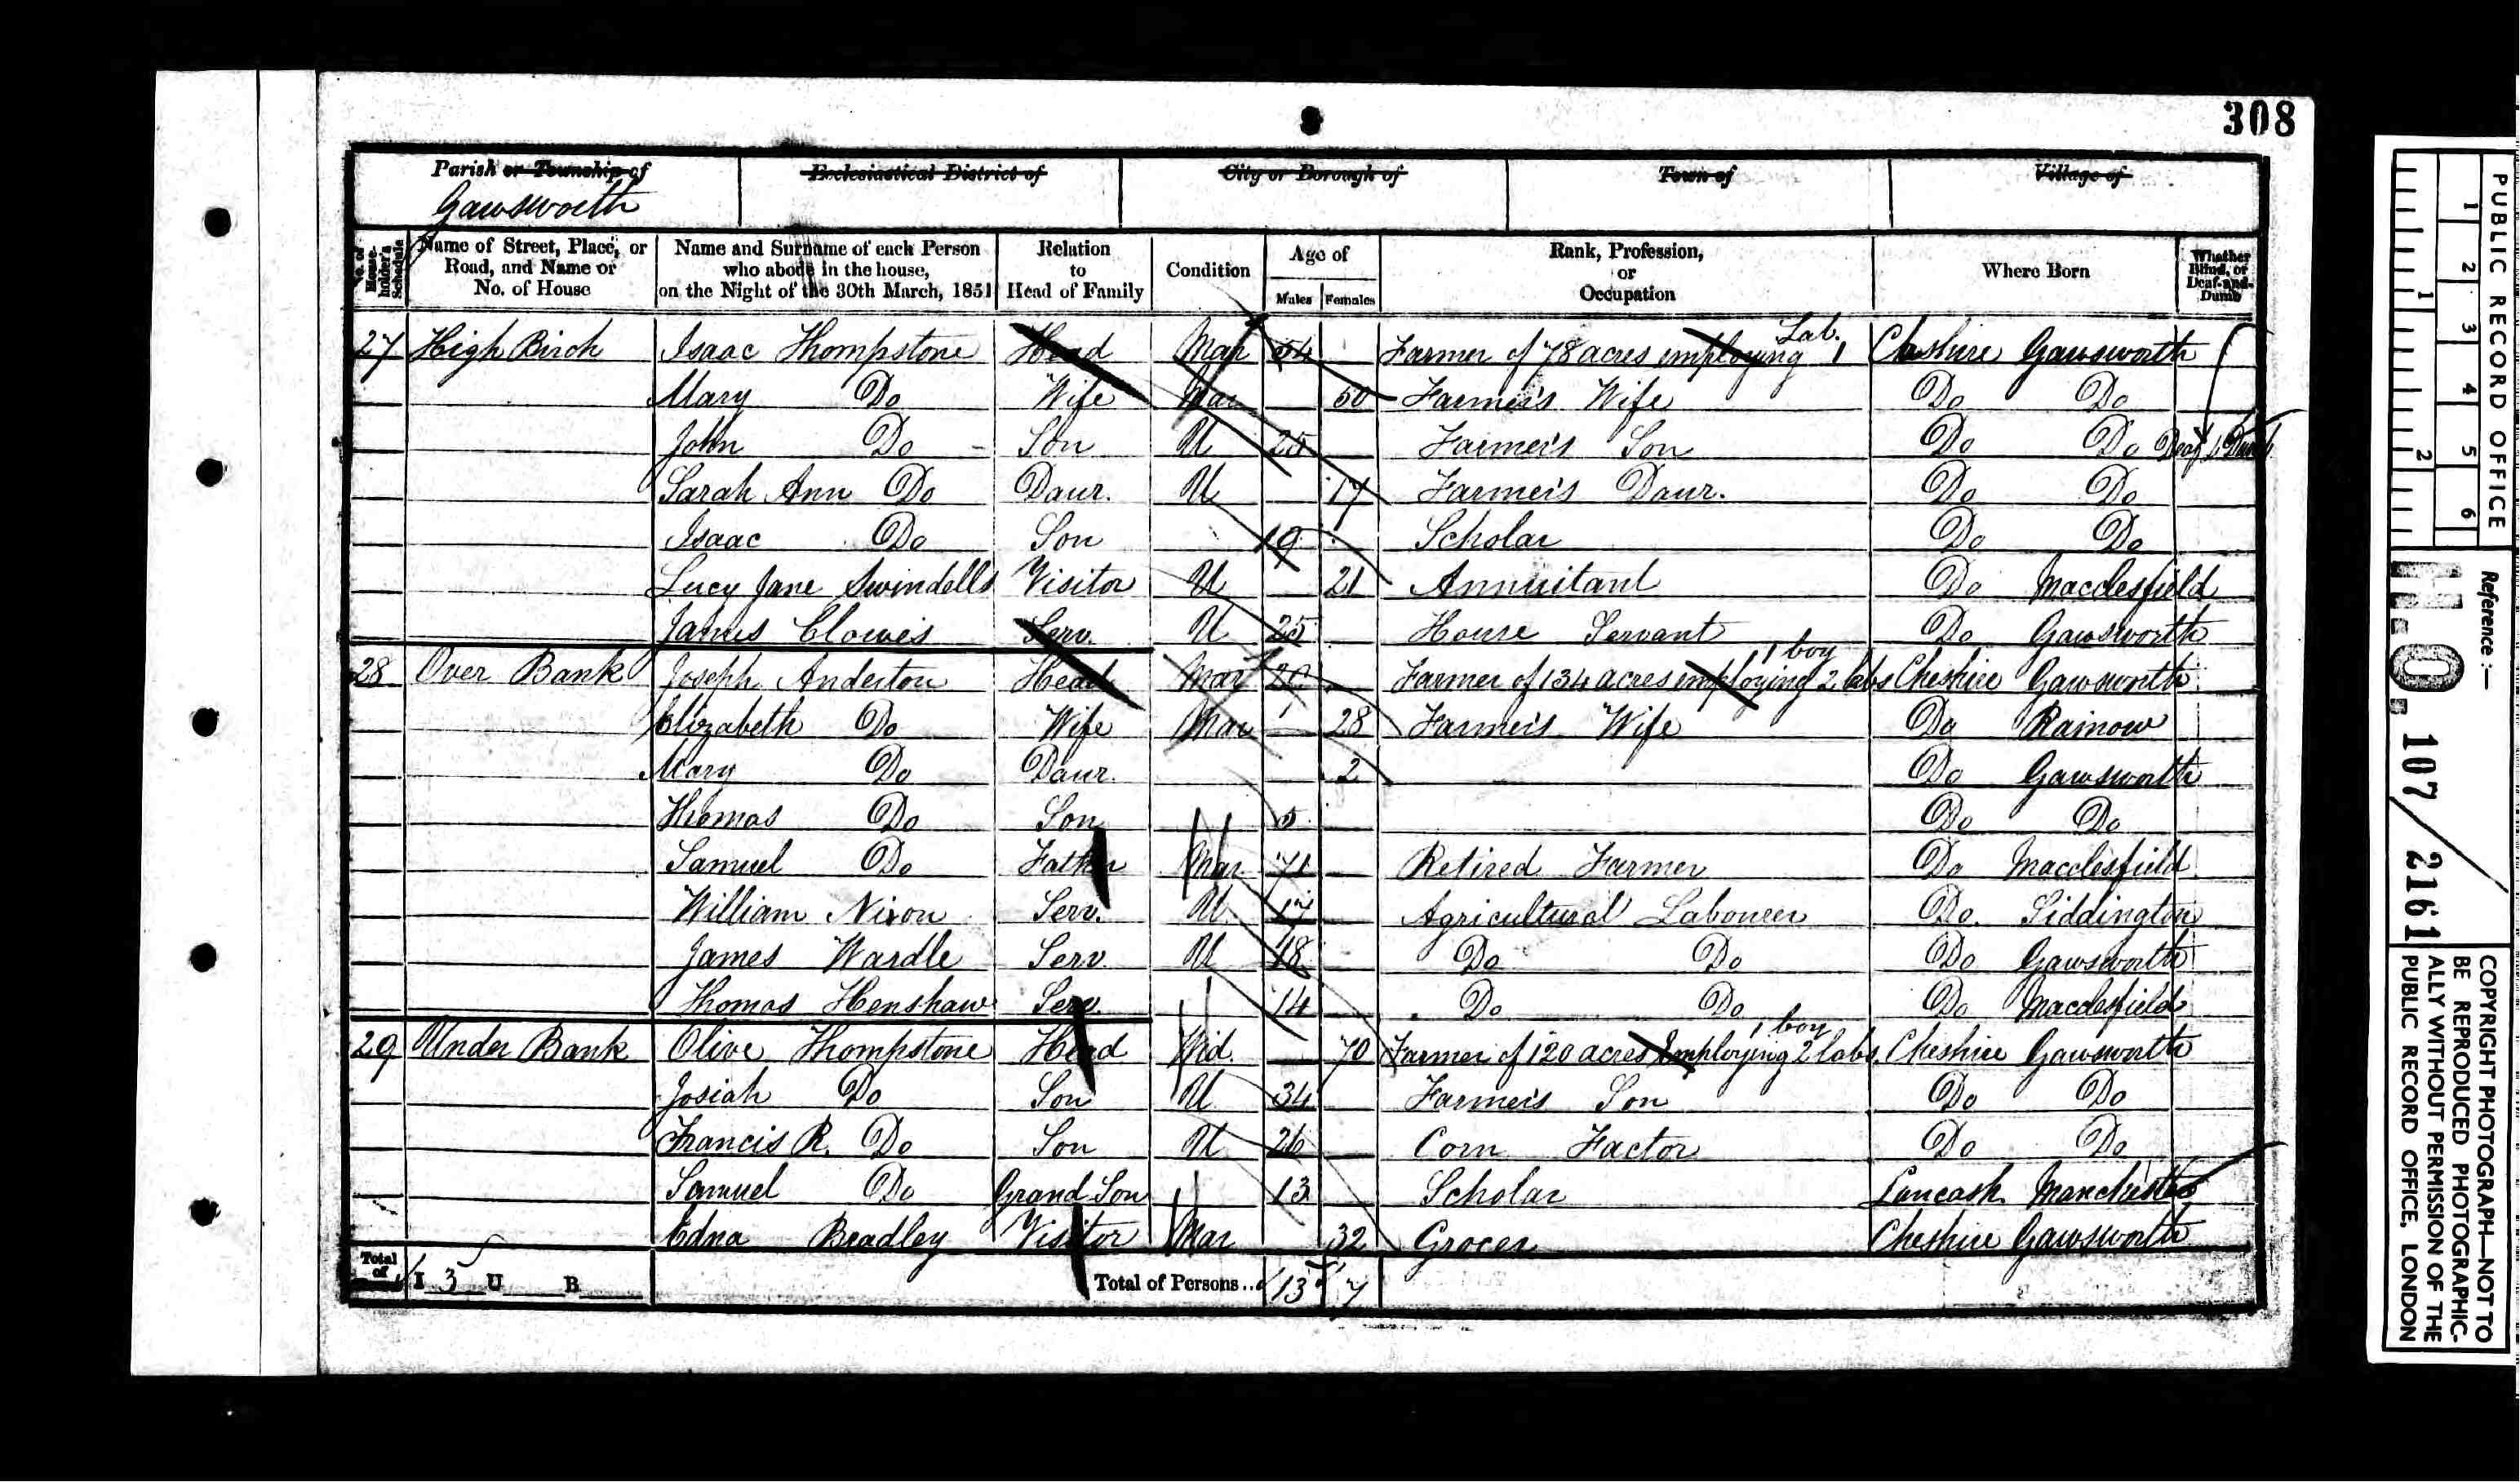 308
Parish or Township of
Gawsworth
Ecclesiastical District of
City or Borough of
Town of
Village of
No. of Householder's Schedule
Name of Street, Place, or Road, and Name or No. of House
Name and Surname of each Person who abode in the house, on the Night of the 30th March, 1851
Relation to Head of Family
Condition
Age of
Males
Females
Rank, Profession, or Occupation
Where Born
Whether Blind, or Deaf-and-Dumb
27 High Birch Isaac Thompstone Head Mar 54 Farmer of 78 acres employing 1 Lab. Cheshire Gawsworth
Mary Do Wife Mar 50 Farmer's Wife Do Do
John Do Son U 25 Farmer's Son Do Do Deaf & Dumb
Sarah Ann Do Daur. U 17 Farmer's Daur. Do Do
Isaac Do Son Scholar Do Do
Lucy Jane Swindells Visitor U 21 Annuitant Do Macclesfield
James Clowes Serv. U 25 House Servant Do Gawsworth
28 Over Bank Joseph Anderton Head Mar Farmer of 134 acres employing 2 labs 1 boy Cheshire Gawsworth
Elizabeth Do Wife Mar 28 Farmer's Wife Do Rainow
Mary Do Daur. 2 Do Gawsworth
Thomas Do Son Do Do
Samuel Do Father Mar 71 Retired Farmer Do Macclesfield
William Nixon Serv. U 17 Agricultural Labourer Do. Siddington
James Wardle Serv. U 18 Do Do Do Gawsworth
Thomas Henshaw Serv. 14 Do Do Do Macclesfield
29 Under Bank Olive Thompstone Head Wid. 70 Farmer of 120 acres Employing 2 labs. 1 boy Cheshire Gawsworth
Josiah Do Son U 34 Farmer's Son Do Do
Francis R. Do Son U 26 Corn Factor Do Do
Samuel Do Grand Son 13 Scholar Lancash. Manchester
Edna Bradley Visitor Mar 32 Grocer Cheshire Gawsworth
Total of
I 3 U B
Total of Persons... 13 7
PUBLIC RECORD OFFICE
1 2 3 4 5 6
1 2
Reference :-
H.O. 107/2161
COPYRIGHT PHOTOGRAPH—NOT TO
BE REPRODUCED PHOTOGRAPHIC-
ALLY WITHOUT PERMISSION OF THE
PUBLIC RECORD OFFICE, LONDON